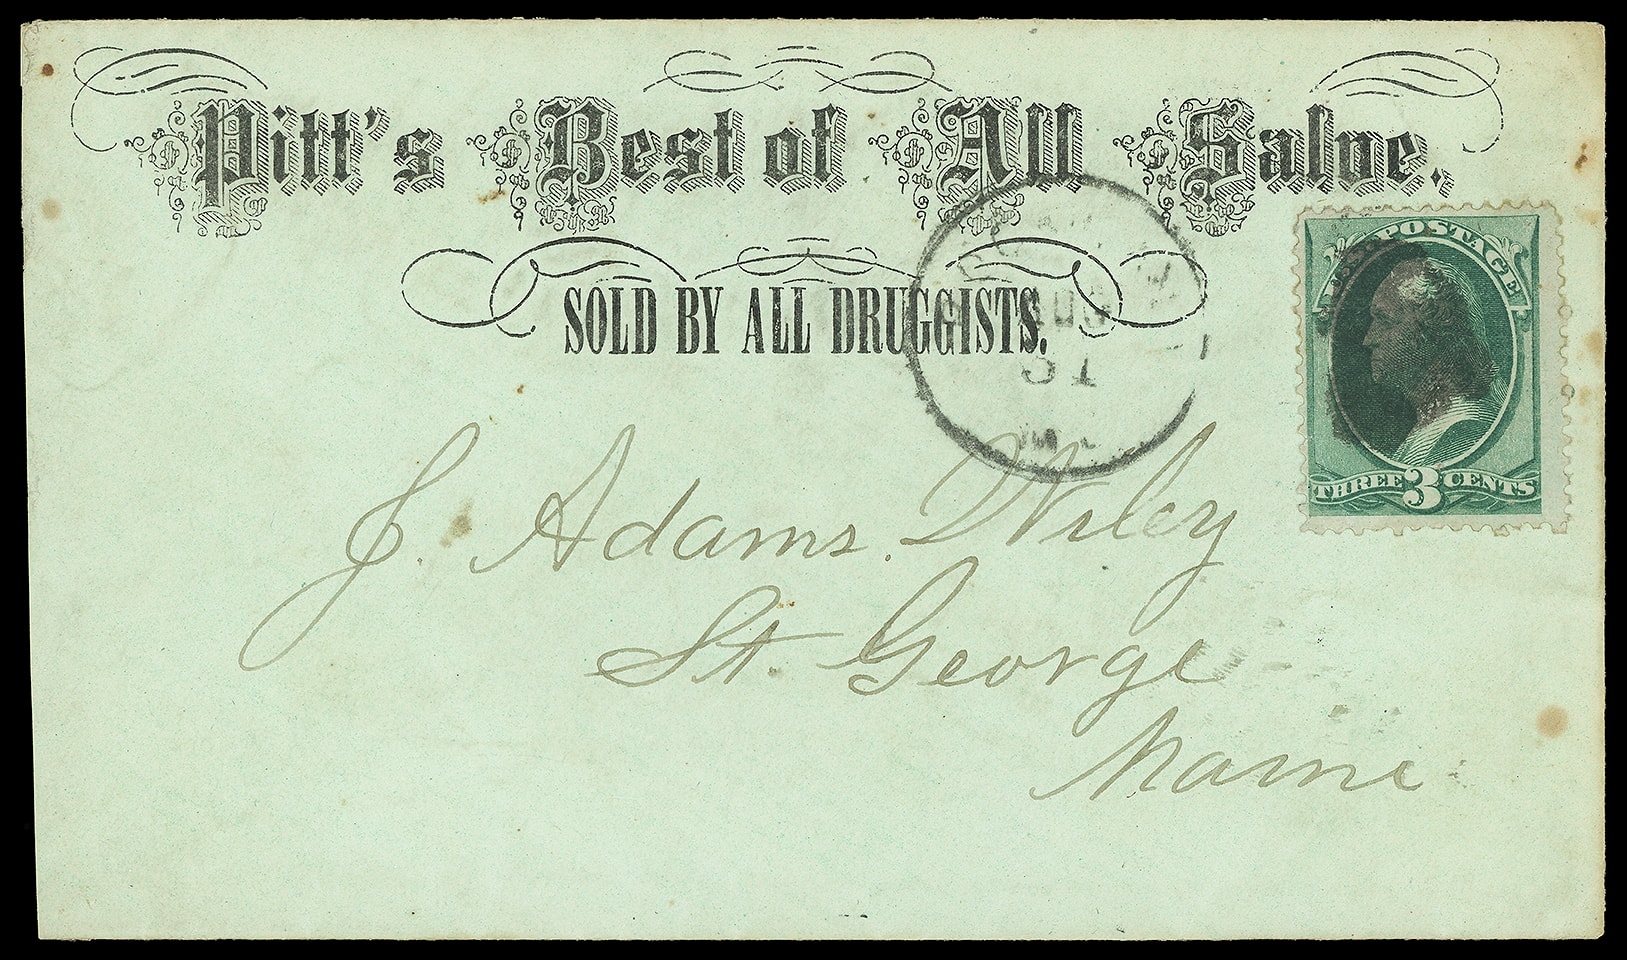 Pitt's Best of All Salve.
SOLD BY ALL DRUGGISTS.
AUG
31
U.S. POSTAGE
THREE 3 CENTS
J. Adams Wiley
St. George
Maine